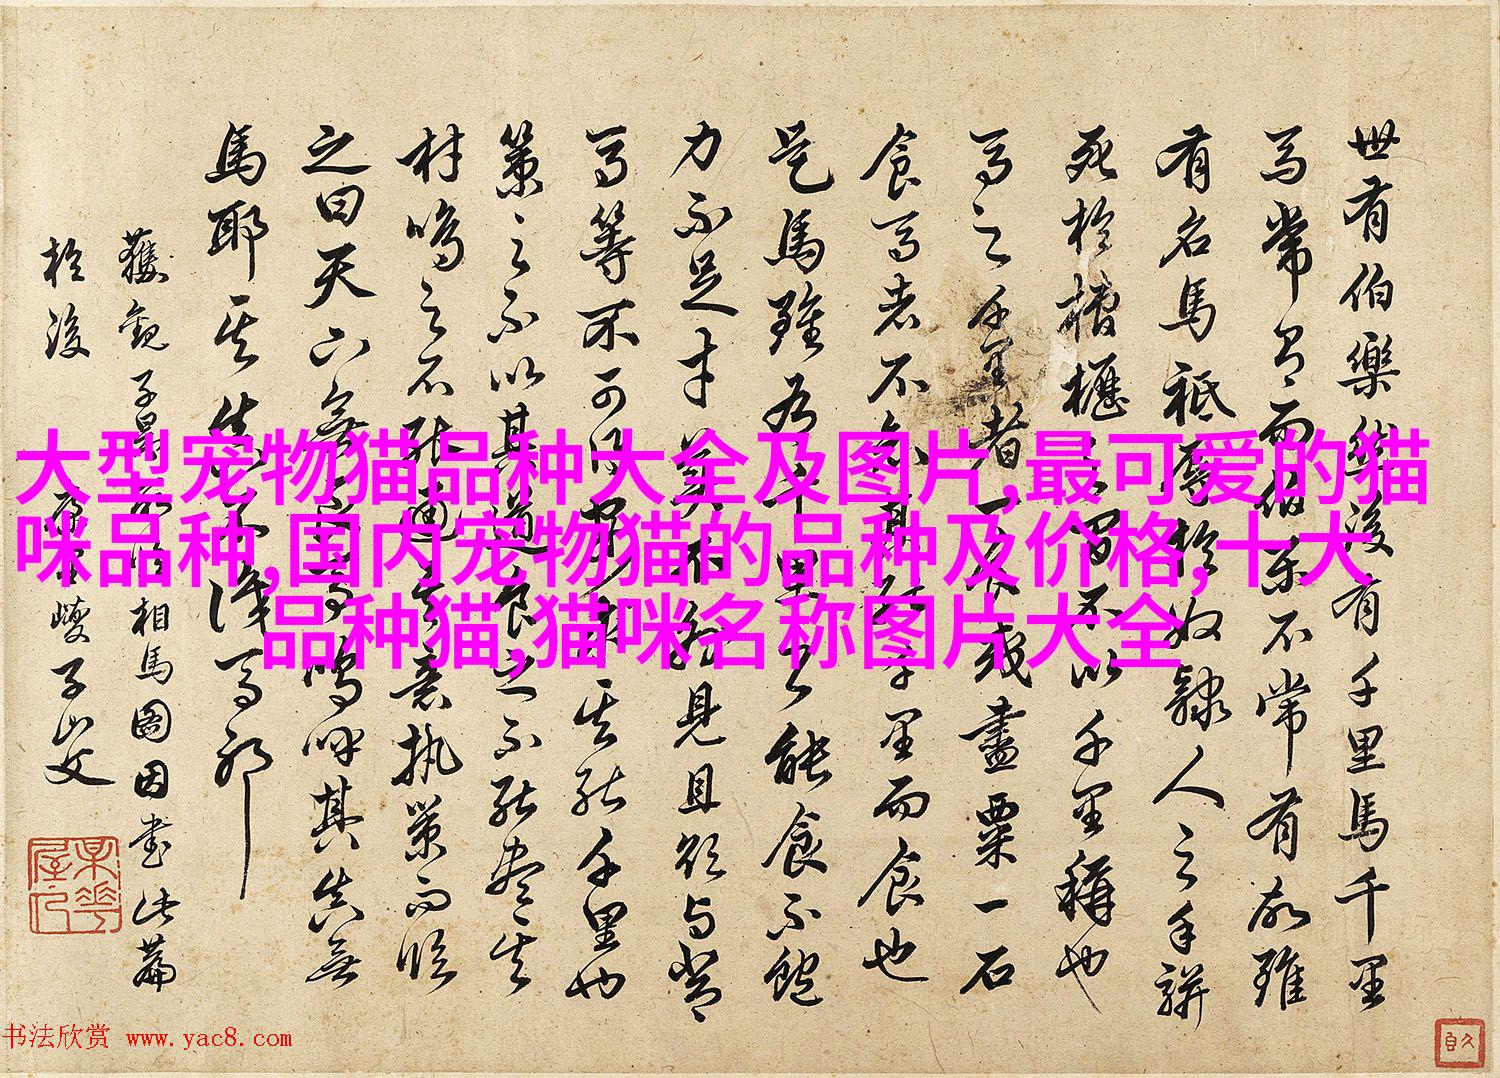 世有伯樂然後有千里馬千里
馬常有而伯樂不常有故雖
有名馬祗辱於奴隸人之手駢
死於槽櫪之間不以千里稱也
馬之千里者一食或盡粟一石
食馬者不知其能千里而食也
是馬雖有千里之能食不飽
力不足才美不外見且欲與常
馬等不可得安求其能千里也
策之不以其道食之不能盡其
材鳴之不能通其意執策而臨
之曰天下無馬嗚呼其真無
馬耶其真不識馬耶
獲觀子昂所畫相馬圖因書此篇
於後 康里巎子山父
大型宠物猫品种大全及图片,最可爱的猫
咪品种,国内宠物猫的品种及价格,十大
品种猫,猫咪名称图片大全
书法欣赏 www.yac8.com